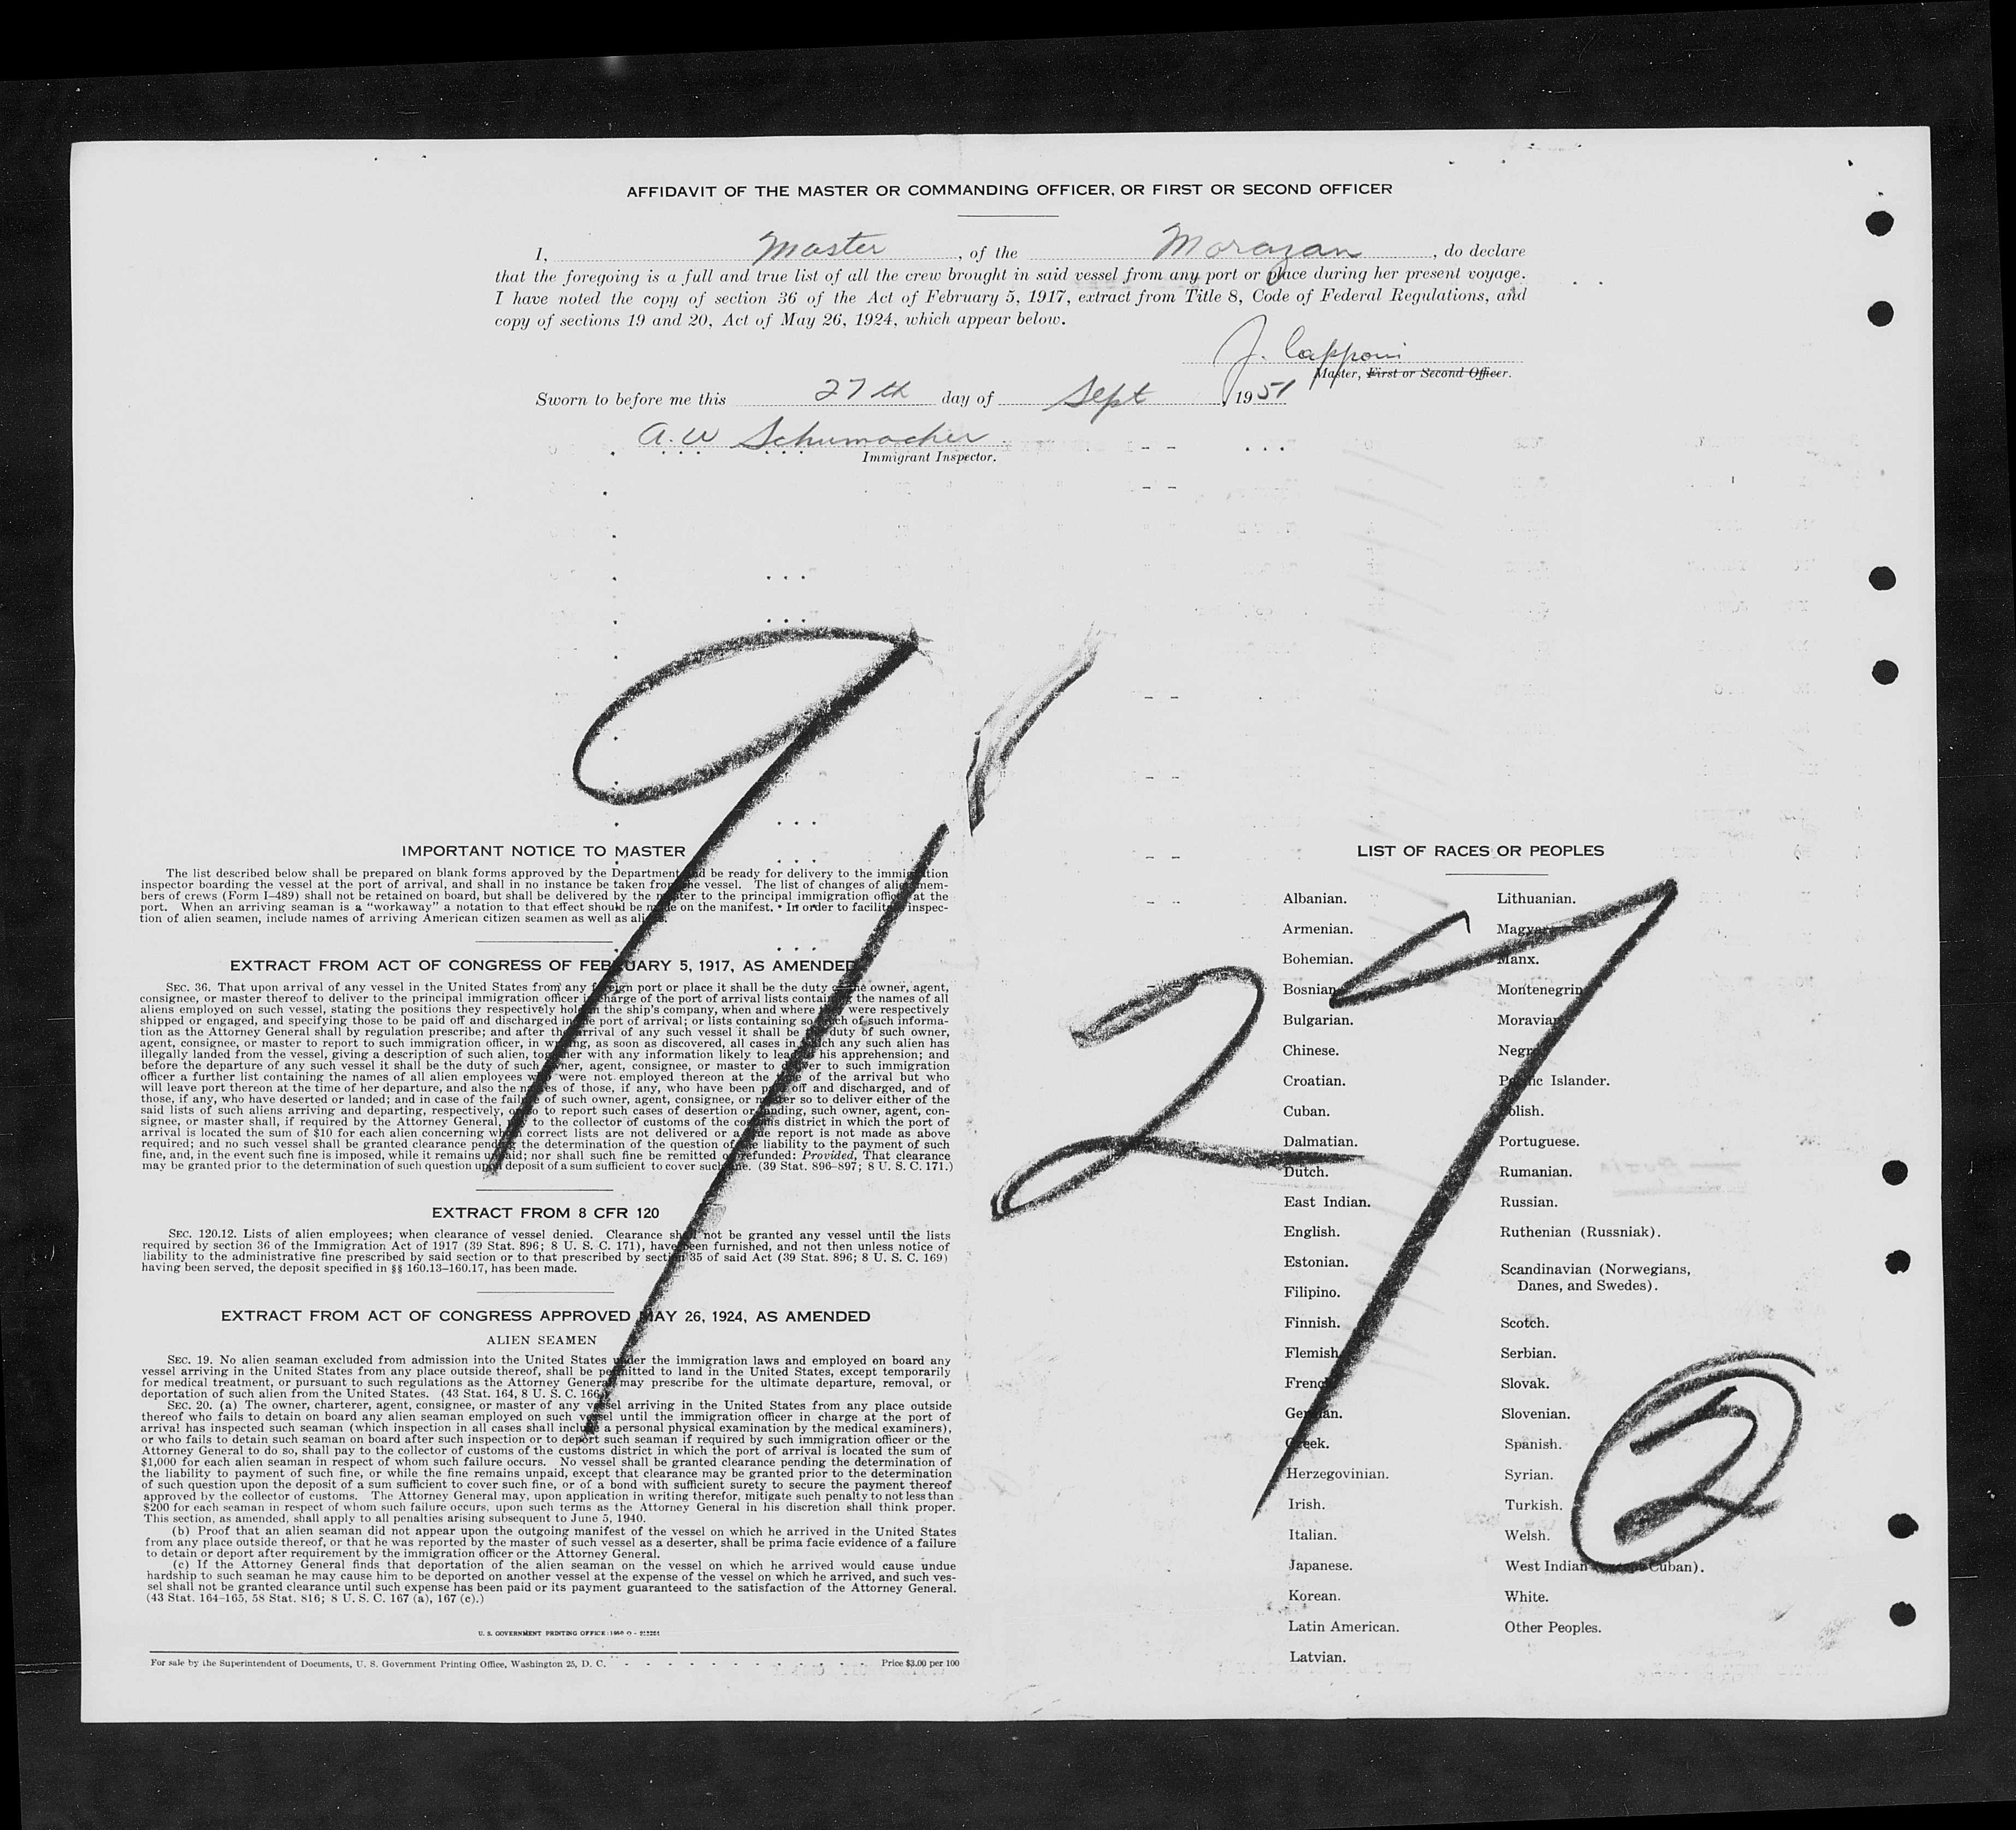 AFFIDAVIT OF THE MASTER OR COMMANDING OFFICER, OR FIRST OR SECOND OFFICER
I, Master, of the Morazan, do declare
that the foregoing is a full and true list of all the crew brought in said vessel from any port or place during her present voyage.
I have noted the copy of section 36 of the Act of February 5, 1917, extract from Title 8, Code of Federal Regulations, and
copy of sections 19 and 20, Act of May 26, 1924, which appear below.
J. Capponi
Master, First or Second Officer.
Sworn to before me this 27th day of Sept, 1951
A. W Schumacher
Immigrant Inspector.
9/27
2
IMPORTANT NOTICE TO MASTER
The list described below shall be prepared on blank forms approved by the Department and be ready for delivery to the immigration
inspector boarding the vessel at the port of arrival, and shall in no instance be taken from the vessel. The list of changes of alien mem-
bers of crews (Form I–489) shall not be retained on board, but shall be delivered by the master to the principal immigration officer at the
port. When an arriving seaman is a "workaway" a notation to that effect should be made on the manifest. In order to facilitate inspec-
tion of alien seamen, include names of arriving American citizen seamen as well as aliens.
EXTRACT FROM ACT OF CONGRESS OF FEBRUARY 5, 1917, AS AMENDED
SEC. 36. That upon arrival of any vessel in the United States from any foreign port or place it shall be the duty of the owner, agent,
consignee, or master thereof to deliver to the principal immigration officer in charge of the port of arrival lists containing the names of all
aliens employed on such vessel, stating the positions they respectively hold in the ship's company, when and where they were respectively
shipped or engaged, and specifying those to be paid off and discharged in the port of arrival; or lists containing so much of such informa-
tion as the Attorney General shall by regulation prescribe; and after the arrival of any such vessel it shall be the duty of such owner,
agent, consignee, or master to report to such immigration officer, in writing, as soon as discovered, all cases in which any such alien has
illegally landed from the vessel, giving a description of such alien, together with any information likely to lead to his apprehension; and
before the departure of any such vessel it shall be the duty of such owner, agent, consignee, or master to deliver to such immigration
officer a further list containing the names of all alien employees who were not employed thereon at the time of the arrival but who
will leave port thereon at the time of her departure, and also the names of those, if any, who have been paid off and discharged, and of
those, if any, who have deserted or landed; and in case of the failure of such owner, agent, consignee, or master so to deliver either of the
said lists of such aliens arriving and departing, respectively, or so to report such cases of desertion or landing, such owner, agent, con-
signee, or master shall, if required by the Attorney General, pay to the collector of customs of the customs district in which the port of
arrival is located the sum of $10 for each alien concerning whom correct lists are not delivered or a true report is not made as above
required; and no such vessel shall be granted clearance pending the determination of the question of the liability to the payment of such
fine, and, in the event such fine is imposed, while it remains unpaid; nor shall such fine be remitted or refunded: Provided, That clearance
may be granted prior to the determination of such question upon deposit of a sum sufficient to cover such fine. (39 Stat. 896–897; 8 U. S. C. 171.)
EXTRACT FROM 8 CFR 120
SEC. 120.12. Lists of alien employees; when clearance of vessel denied. Clearance shall not be granted any vessel until the lists
required by section 36 of the Immigration Act of 1917 (39 Stat. 896; 8 U. S. C. 171), have been furnished, and not then unless notice of
liability to the administrative fine prescribed by said section or to that prescribed by section 35 of said Act (39 Stat. 896; 8 U. S. C. 169)
having been served, the deposit specified in §§ 160.13–160.17, has been made.
EXTRACT FROM ACT OF CONGRESS APPROVED MAY 26, 1924, AS AMENDED
ALIEN SEAMEN
SEC. 19. No alien seaman excluded from admission into the United States under the immigration laws and employed on board any
vessel arriving in the United States from any place outside thereof, shall be permitted to land in the United States, except temporarily
for medical treatment, or pursuant to such regulations as the Attorney General may prescribe for the ultimate departure, removal, or
deportation of such alien from the United States. (43 Stat. 164, 8 U. S. C. 166)
SEC. 20. (a) The owner, charterer, agent, consignee, or master of any vessel arriving in the United States from any place outside
thereof who fails to detain on board any alien seaman employed on such vessel until the immigration officer in charge at the port of
arrival has inspected such seaman (which inspection in all cases shall include a personal physical examination by the medical examiners),
or who fails to detain such seaman on board after such inspection or to deport such seaman if required by such immigration officer or the
Attorney General to do so, shall pay to the collector of customs of the customs district in which the port of arrival is located the sum of
$1,000 for each alien seaman in respect of whom such failure occurs. No vessel shall be granted clearance pending the determination of
the liability to payment of such fine, or while the fine remains unpaid, except that clearance may be granted prior to the determination
of such question upon the deposit of a sum sufficient to cover such fine, or of a bond with sufficient surety to secure the payment thereof
approved by the collector of customs. The Attorney General may, upon application in writing therefor, mitigate such penalty to not less than
$200 for each seaman in respect of whom such failure occurs, upon such terms as the Attorney General in his discretion shall think proper.
This section, as amended, shall apply to all penalties arising subsequent to June 5, 1940.
(b) Proof that an alien seaman did not appear upon the outgoing manifest of the vessel on which he arrived in the United States
from any place outside thereof, or that he was reported by the master of such vessel as a deserter, shall be prima facie evidence of a failure
to detain or deport after requirement by the immigration officer or the Attorney General.
(c) If the Attorney General finds that deportation of the alien seaman on the vessel on which he arrived would cause undue
hardship to such seaman he may cause him to be deported on another vessel at the expense of the vessel on which he arrived, and such ves-
sel shall not be granted clearance until such expense has been paid or its payment guaranteed to the satisfaction of the Attorney General.
(43 Stat. 164–165, 58 Stat. 816; 8 U. S. C. 167 (a), 167 (c).)
U. S. GOVERNMENT PRINTING OFFICE: 1950 O -
For sale by the Superintendent of Documents, U. S. Government Printing Office, Washington 25, D. C. - - - - - - - - - - - - Price $3.00 per 100
LIST OF RACES OR PEOPLES
Albanian.
Armenian.
Bohemian.
Bosnian.
Bulgarian.
Chinese.
Croatian.
Cuban.
Dalmatian.
Dutch.
East Indian.
English.
Estonian.
Filipino.
Finnish.
Flemish.
French.
German.
Greek.
Herzegovinian.
Irish.
Italian.
Japanese.
Korean.
Latin American.
Latvian.
Lithuanian.
Magyar.
Manx.
Montenegrin.
Moravian.
Negro.
Pacific Islander.
Polish.
Portuguese.
Rumanian.
Russian.
Ruthenian (Russniak).
Scandinavian (Norwegians,
Danes, and Swedes).
Scotch.
Serbian.
Slovak.
Slovenian.
Spanish.
Syrian.
Turkish.
Welsh.
West Indian (except Cuban).
White.
Other Peoples.